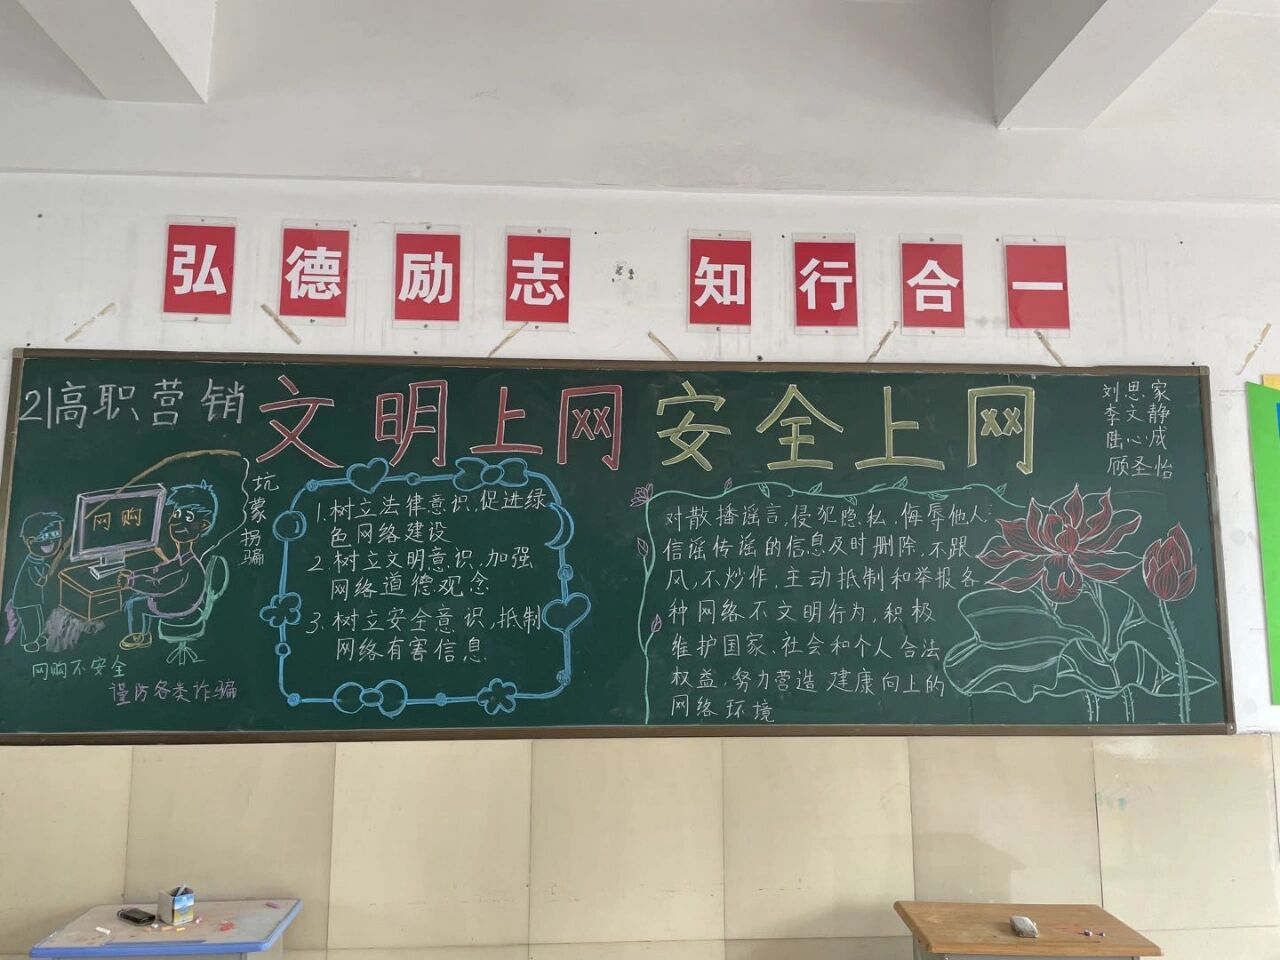 弘德励志 知行合一
21高职营销
文明上网 安全上网
刘思家
李文静
陆心成
顾圣怡
网购
坑蒙拐骗
网购不安全
谨防各类诈骗
1.树立法律意识,促进绿
色网络建设
2.树立文明意识,加强
网络道德观念
3.树立安全意识,抵制
网络有害信息
对散播谣言,侵犯隐私,侮辱他人;
信谣传谣的信息及时删除,不跟
风,不炒作,主动抵制和举报各
种网络不文明行为,积极
维护国家、社会和个人合法
权益,努力营造建康向上的
网络环境